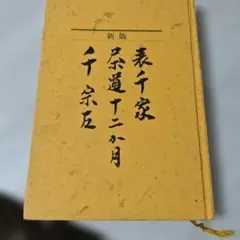 新版
表千家
茶道十二か月
千宗左